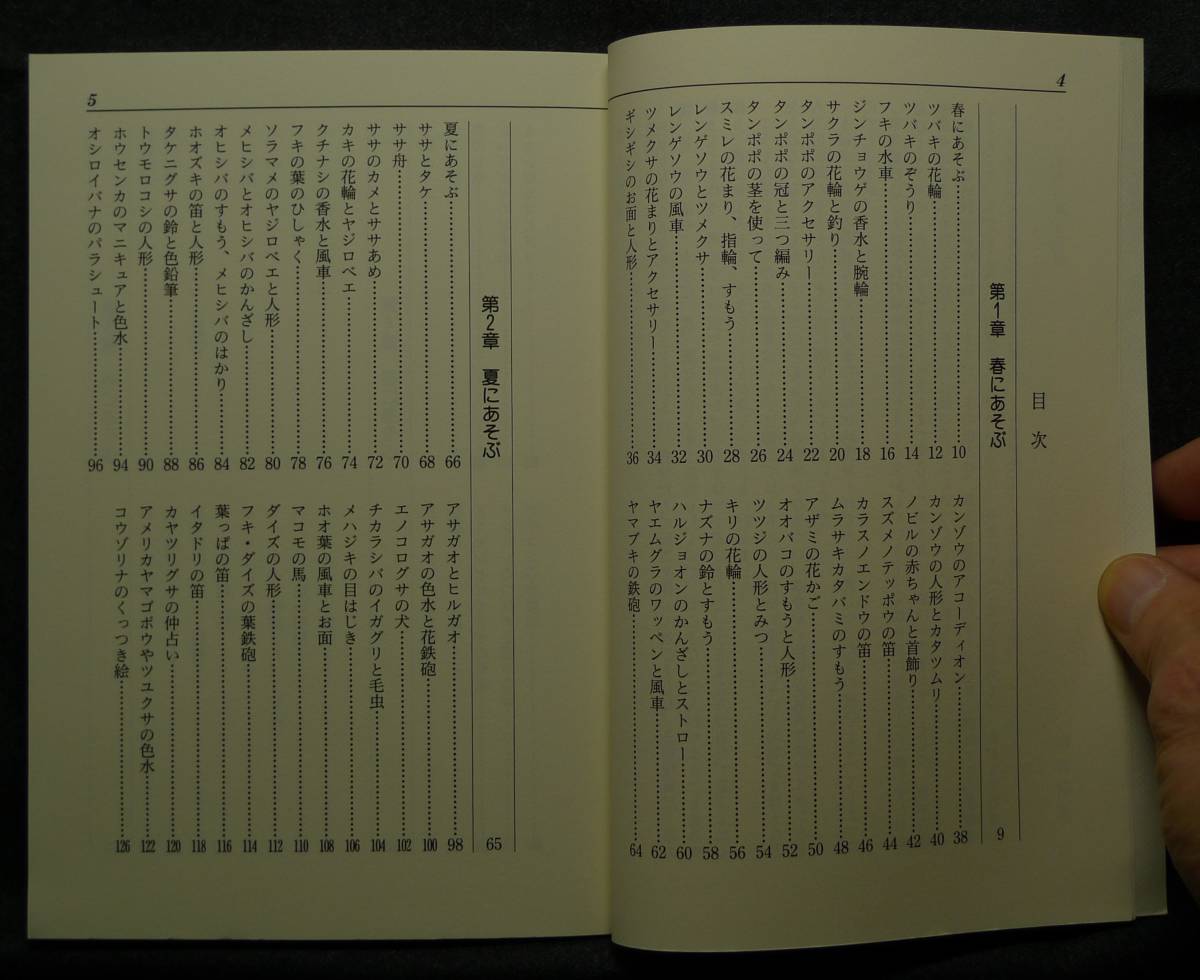 4
目次
第1章 春にあそぶ 9
春にあそぶ 10
ツバキの花輪 12
ツバキのぞうり 14
フキの水車 16
ジンチョウゲの香水と腕輪 18
サクラの花輪と釣り 20
タンポポのアクセサリー 22
タンポポの冠と三つ編み 24
タンポポの茎を使って 26
スミレの花まり、指輪、すもう 28
レンゲソウとツメクサ 30
レンゲソウの風車 32
ツメクサの花まりとアクセサリー 34
ギシギシのお面と人形 36
カンゾウのアコーディオン 38
カンゾウの人形とカタツムリ 40
ノビルの赤ちゃんと首飾り 42
スズメノテッポウの笛 44
カラスノエンドウの笛 46
ムラサキカタバミのすもう 48
アザミの花かご 50
オオバコのすもうと人形 52
ツツジの人形とみつ 54
キリの花輪 56
ナズナの鈴とすもう 58
ハルジョオンのかんざしとストロー 60
ヤエムグラのワッペンと風車 62
ヤマブキの鉄砲 64
5
第2章 夏にあそぶ 65
夏にあそぶ 66
ササとタケ 68
ササ舟 70
ササのカメとササあめ 72
カキの花輪とヤジロベエ 74
クチナシの香水と風車 76
フキの葉のひしゃく 78
ソラマメのヤジロベエと人形 80
メヒシバとオヒシバのかんざし 82
オヒシバのすもう、メヒシバのはかり 84
ホオズキの笛と人形 86
タケニグサの鈴と色鉛筆 88
トウモロコシの人形 90
ホウセンカのマニキュアと色水 94
オシロイバナのパラシュート 96
アサガオとヒルガオ 98
アサガオの色水と花鉄砲 100
エノコログサの犬 102
チカラシバのイガグリと毛虫 104
メハジキの目はじき 106
ホオ葉の風車とお面 108
マコモの馬 110
ダイズの人形 112
フキ・ダイズの葉鉄砲 114
葉っぱの笛 116
イタドリの笛 118
カヤツリグサの仲占い 120
アメリカヤマゴボウやツユクサの色水 122
コウゾリナのくっつき絵 126